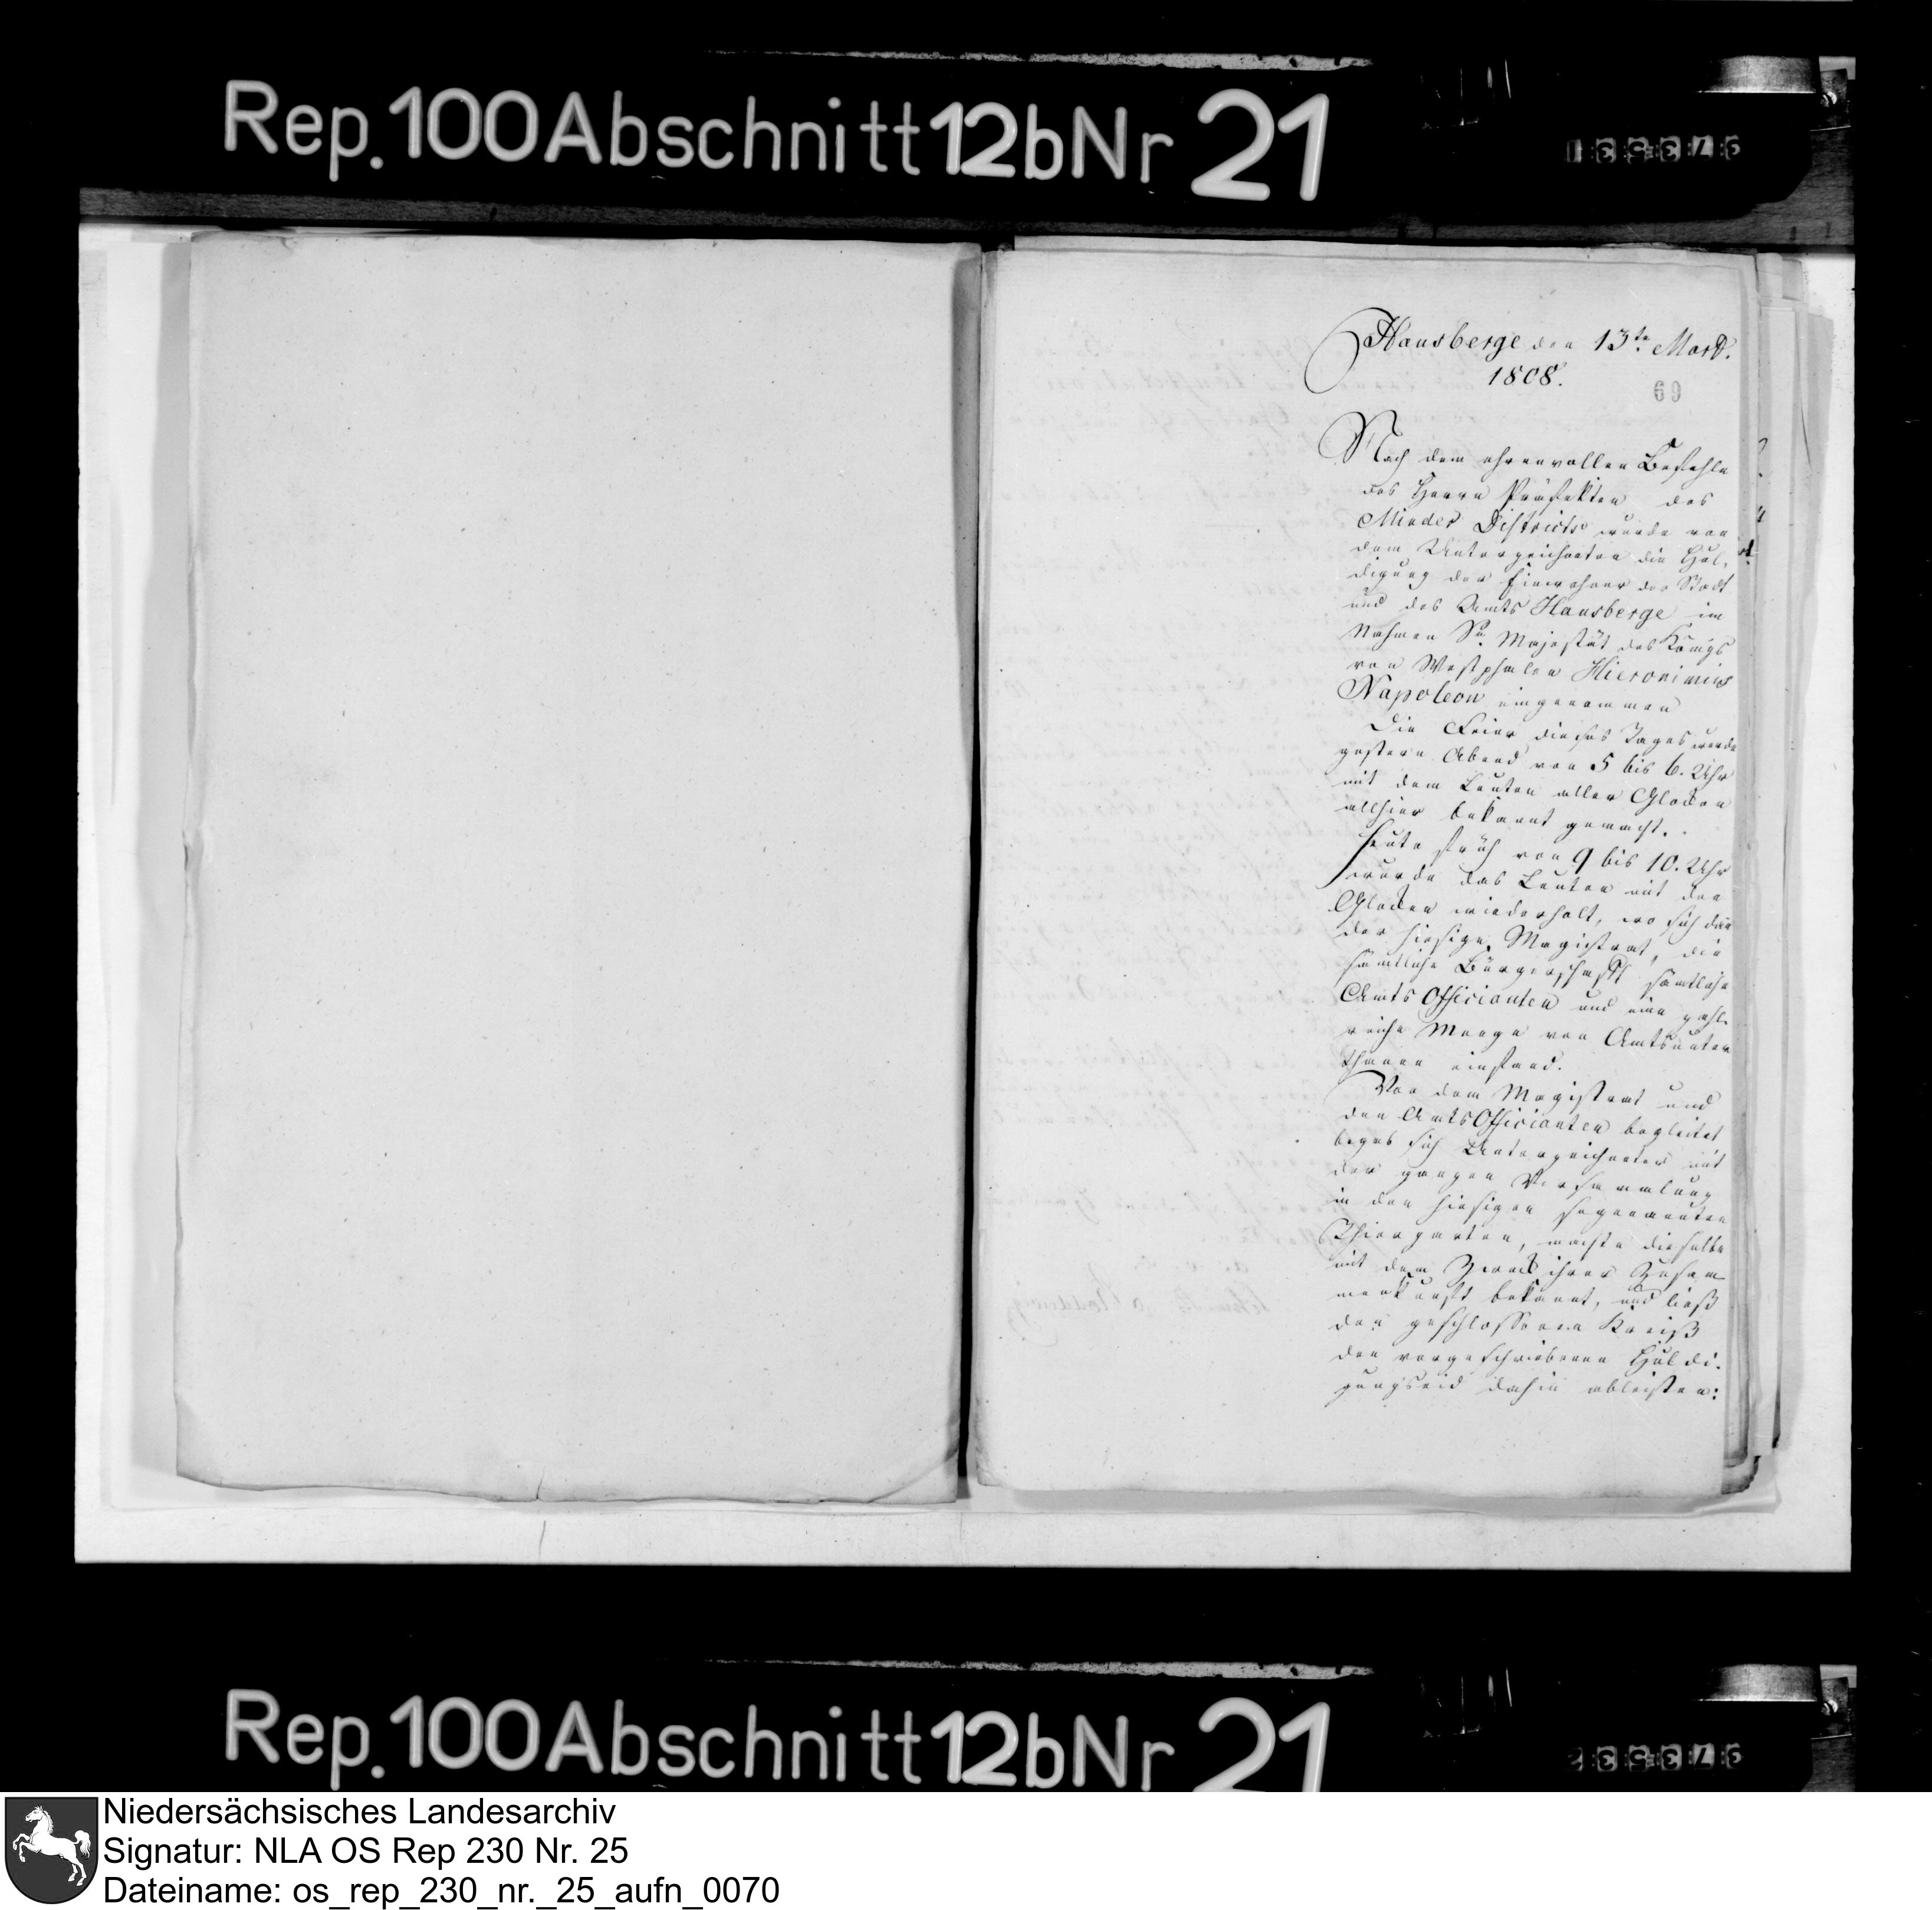 Rep. 100 Abschnitt 12b Nr 21
Hausberge den 13te Mart.
1808.
69
Nach dem ehrenvollen Befehle
des Herrn Präfekten des
Minder Districts wurde von
dem Unterzeichneten die Hul,
digung der Einwohner der Stadt
und des Amts Hausberge im
Nahmen Sr. Majestät des Königs
von Westphalen Hieronimus
Napoleon eingenommen
Die Feier dieses Tages wurde
gestern Abend von 5 bis 6. Uhr
mit dem Leuten aller Glocken
allhier bekannt gemacht.
Heute früh von 9 bis 10. Uhr
wurde das Leuten mit den
Glocken wiederholt, wo sich dan
der hiesige Magistrat, die
sämtliche Bürgerschafft sämtliche
Amts Officianten und eine zahl-
reiche Menge von Amtsunter
thanen einfand.
Von dem Magistrat und
den Amts Officianten begleitet
begab sich Unterzeichneter mit
der ganzen Versammlung
in den hiesigen sogenannten
Thiergarten, machte dieselbe
mit dem Zweck ihrer Zusam
menkunft bekannt, und ließ
den geschlossenen Kreiß
den vorgeschriebenen Huldi-
gungseid dahin ableisten:
Rep. 100 Abschnitt 12b Nr 21
Niedersächsisches Landesarchiv
Signatur: NLA OS Rep 230 Nr. 25
Dateiname: os_rep_230_nr._25_aufn_0070